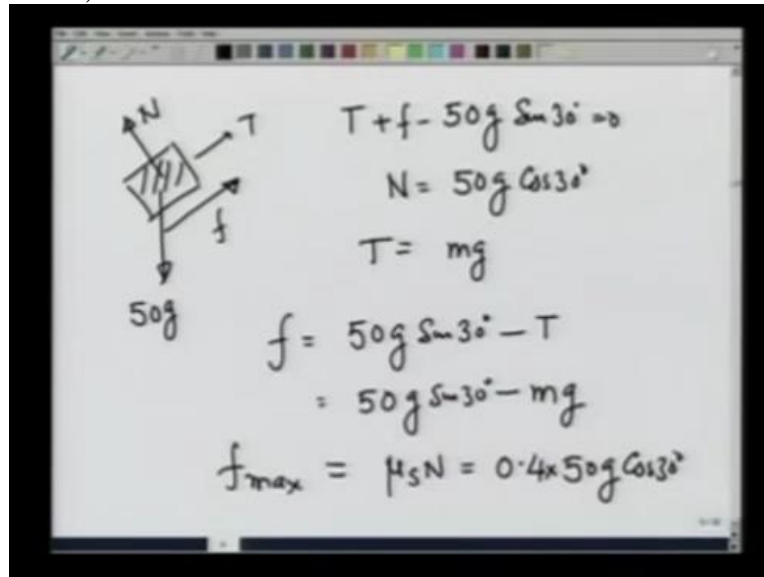 N
T
T + f - 50g Sin 30° = 0
N = 50g Cos 30°
f
T = mg
50g
f = 50g Sin 30° - T
= 50g Sin 30° - mg
fmax = μsN = 0.4 x 50g Cos 30°